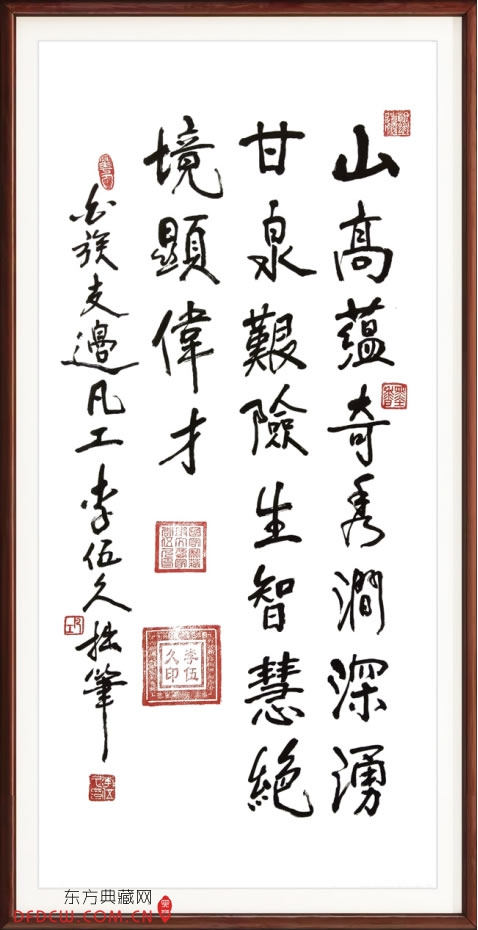 山高蕴奇秀澗深湧
甘泉艱險生智慧絕
境顯偉才
白族支邊凡工李伍久拙筆
李伍
久印
凡工
东方典藏网
DFDCW.COM.CN